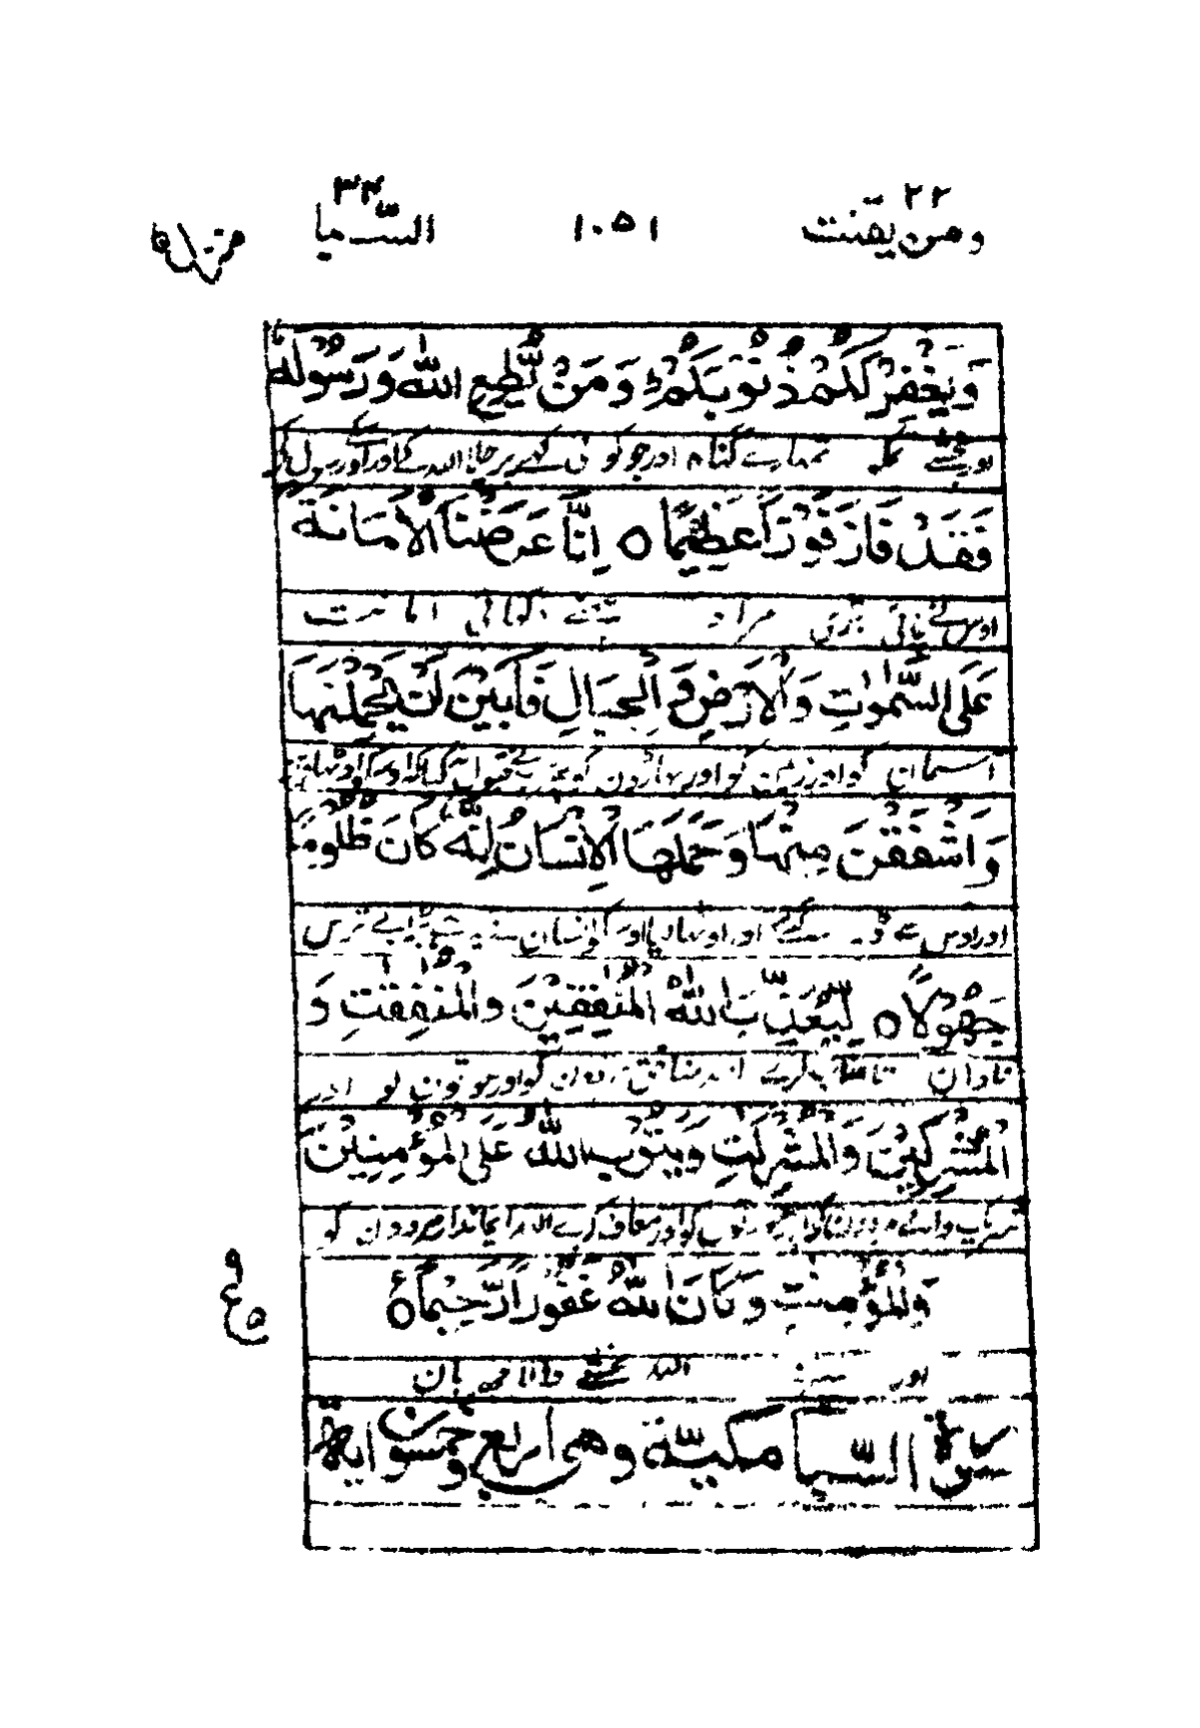 ومن یقنت ٢٢
١٠٥١
السبا ٣٤
وَيَغْفِرْ لَكُمْ ذُنُوْبَكُمْ وَمَنْ يُّطِعِ اللّٰهَ وَرَسُوْلَهٗ
اور بخشے تمکو تمہارے گناہ اور جو کوئی کہے پر چلا اللہ کے اور رسول کے
فَقَدْ فَازَ فَوْزًا عَظِيْمًا ○ اِنَّا عَرَضْنَا الْاَمَانَةَ
اوسنے پائی بڑی مراد ہمنے دکھائی امانت
عَلَى السَّمٰوٰتِ وَالْاَرْضِ وَ الْجِبَالِ فَاَبَيْنَ اَنْ يَّحْمِلْنَهَا
آسمان کو اور زمین کو اور پہاڑون کو پھر سبنے قبول نکیا کہ اوسکو اوٹھاوین
وَاَشْفَقْنَ مِنْهَا وَحَمَلَهَا الْاِنْسَانُ اِنَّهٗ كَانَ ظَلُوْمًا
اور اوس سے ڈر گئے اور اوٹھا لیا اوسکو انسان نے یہ ہے بڑا بے ترس
جَهُوْلًا ○ لِّيُعَذِّبَ اللّٰهُ الْمُنٰفِقِيْنَ وَالْمُنٰفِقٰتِ وَ
نادان تا عذاب کرے اللہ منافق مردون کو اور عورتون کو اور
الْمُشْرِكِيْنَ وَالْمُشْرِكٰتِ وَيَتُوْبَ اللّٰهُ عَلَى الْمُؤْمِنِيْنَ
شریک والے مردون کو اور عورتوں کو اور معاف کرے اللہ ایماندار مردون کو
وَالْمُؤْمِنٰتِ وَكَانَ اللّٰهُ غَفُوْرًا رَّحِيْمًا ○
اور اللہ بخشنے والا مہربان
سورة السبا مكية وهي اربع وخمسون اية